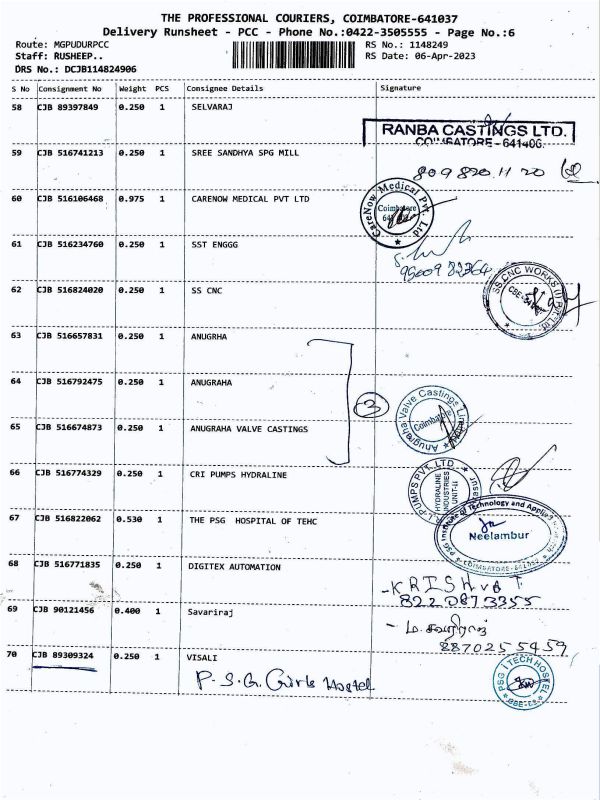 THE PROFESSIONAL COURIERS, COIMBATORE-641037
Delivery Runsheet - PCC - Phone No.:0422-3505555 - Page No.:6
Route: MGPUDURPCC RS No.: 1148249
Staff: RUSHEEP.. RS Date: 06-Apr-2023
DRS No.: DCJB114824906
S No Consignment No Weight PCS Consignee Details Signature
58 CJB 89397849 0.250 1 SELVARAJ
RANBA CASTINGS LTD.
COIMBATORE - 641406.
59 CJB 516741213 0.250 1 SREE SANDHYA SPG MILL
809 820 11 20
60 CJB 516106468 0.975 1 CARENOW MEDICAL PVT LTD
CareNow Medical Pvt. Ltd
Coimbatore
61 CJB 516234760 0.250 1 SST ENGGG
95009 82364
62 CJB 516824020 0.250 1 SS CNC
SS CNC WORKS (I) PVT LTD
63 CJB 516657831 0.250 1 ANUGRHA
64 CJB 516792475 0.250 1 ANUGRAHA
3
65 CJB 516674873 0.250 1 ANUGRAHA VALVE CASTINGS
Anugraha Valve Castings Limited
Coimbatore
66 CJB 516774329 0.250 1 CRI PUMPS HYDRALINE
PUMPS PVT. LTD.
HYDRALINE
INDUSTRIES
UNIT-II
67 CJB 516822062 0.530 1 THE PSG HOSPITAL OF TEHC
PSG Institute of Technology and Applied
Neelambur
COIMBATORE-641062
68 CJB 516771835 0.250 1 DIGITEX AUTOMATION
822 0873355
69 CJB 90121456 0.400 1 Savariraj
- ம.சவரிராஜ்
8870255459
70 CJB 89309324 0.250 1 VISALI
P.S.G. Girls Hostel
PSG ITECH HOSTEL